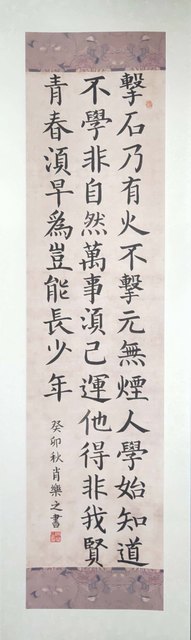 擊石乃有火不擊元無煙人學始知道
不學非自然萬事須己運他得非我賢
青春須早為豈能長少年
癸卯秋肖樂之書